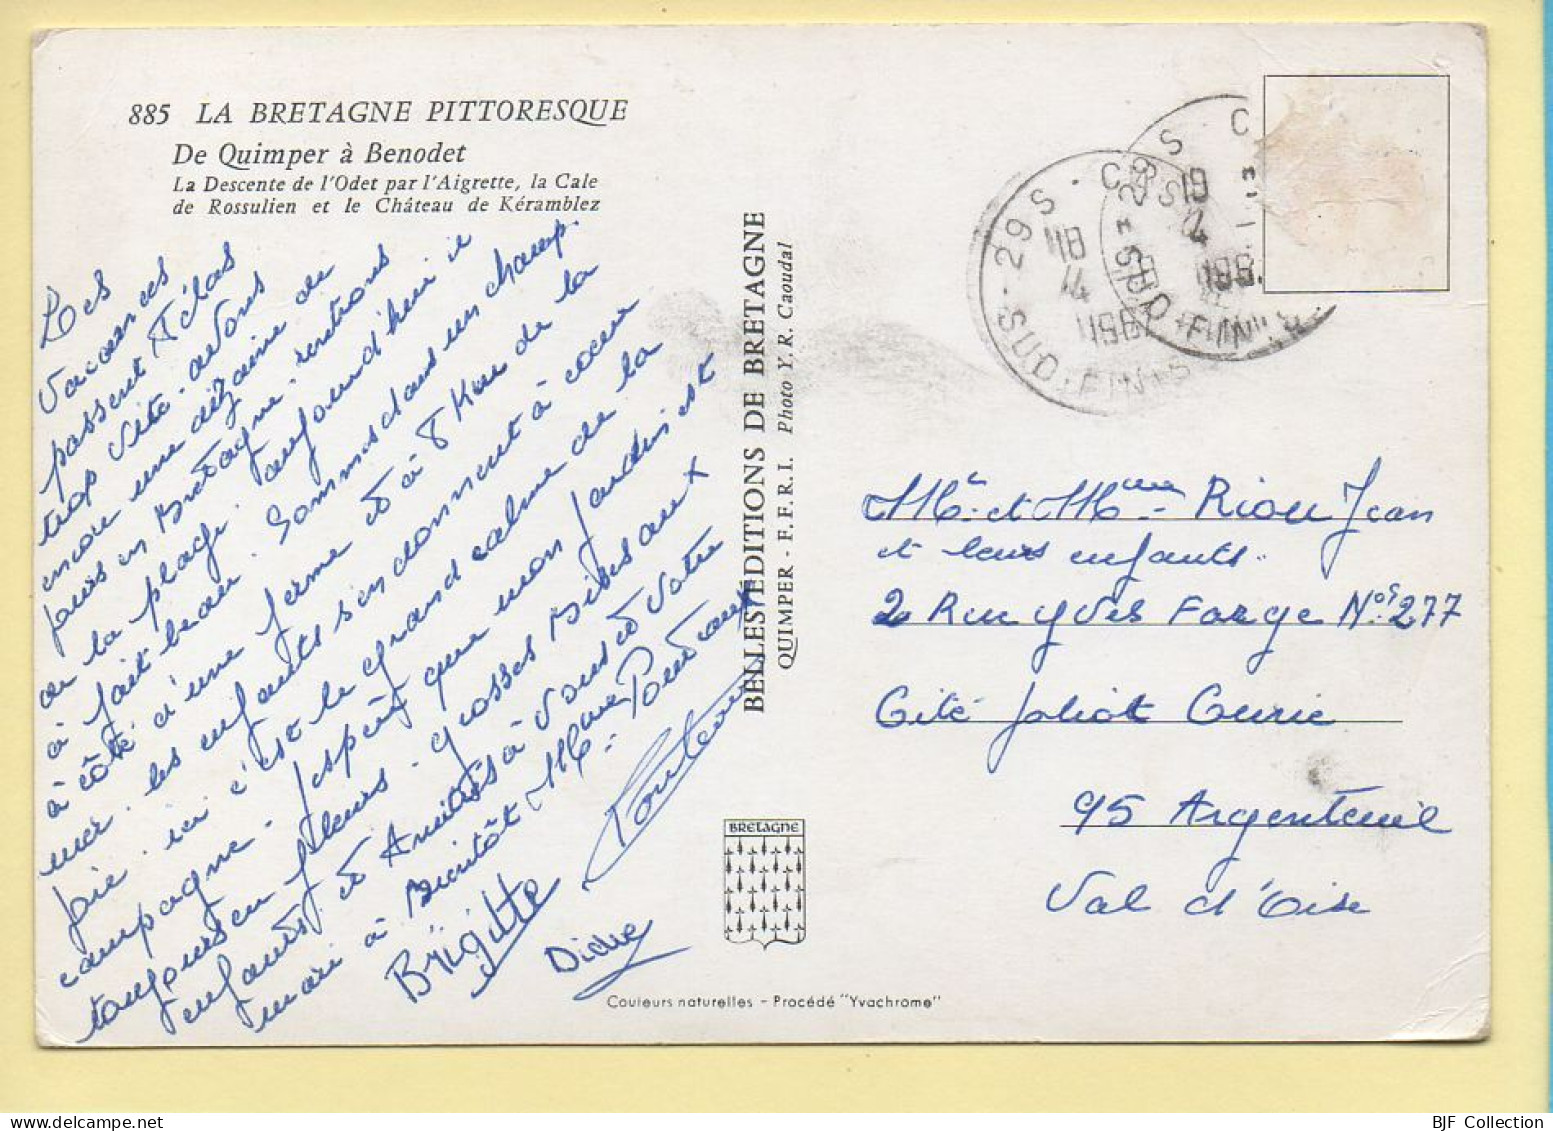 885 LA BRETAGNE PITTORESQUE
De Quimper à Benodet
La Descente de l'Odet par l'Aigrette, la Cale
de Rossulien et le Château de Kéramblez
Les
vacances
passent hélas
trop vite. avons
encore une dizaine de
jours en Bretagne. rentrons
de la plage. aujourd'hui il
à fait beau. Sommes dans un champ.
à côté d'une ferme et à 8 Km de la
mer. les enfants s'en donnent à cœur
joie. ici c'est le grand calme de la
campagne. J'espère que mon jardin est
toujours en fleurs. Grosses Bises aux
enfants et Amitiés à vous et votre
mari à Bientôt Mme
Brigitte
BELLES EDITIONS DE BRETAGNE
QUIMPER - F.F.R.I. Photo Y. R. Caoudal
BRETAGNE
Couleurs naturelles - Procédé "Yvachrome"
29S
18
4
SUD-FINIS
19
4
Mr et Mme Riou Jean
et leurs enfants.
2 Rue Yves Farge Nos 277
Cité Joliot Curie
95 Argenteuil
Val d'Oise
BJF Collection